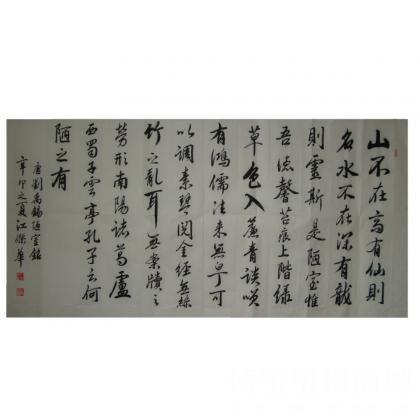 山不在高有仙則
名水不在深有龍
則靈斯是陋室惟
吾德馨苔痕上階緑
草色入簾青談咲
有鴻儒往來無白丁可
以調素琴閱金經無絲
竹之亂耳無案牘之
勞形南陽諸葛廬
西蜀子雲亭孔子云何
陋之有
唐劉禹錫陋室銘
辛卯之夏江華